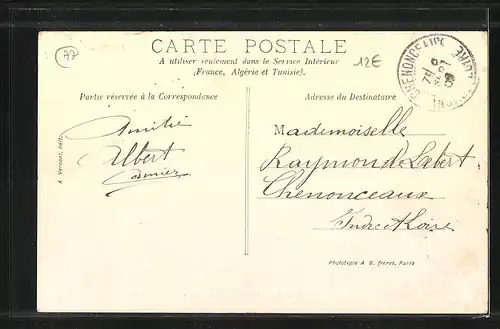 37
CARTE POSTALE
A utiliser seulement dans le Service Intérieur
(France, Algérie et Tunisie).
12€
CHENONCEAUX
Partie réservée à la Correspondance
Adresse du Destinataire
Amitié
Albert
Mademoiselle
Raymonde Labert
Chenonceaux
Indre & Loire
A. Vernant, édit.
Phototypie A B. frères, Paris